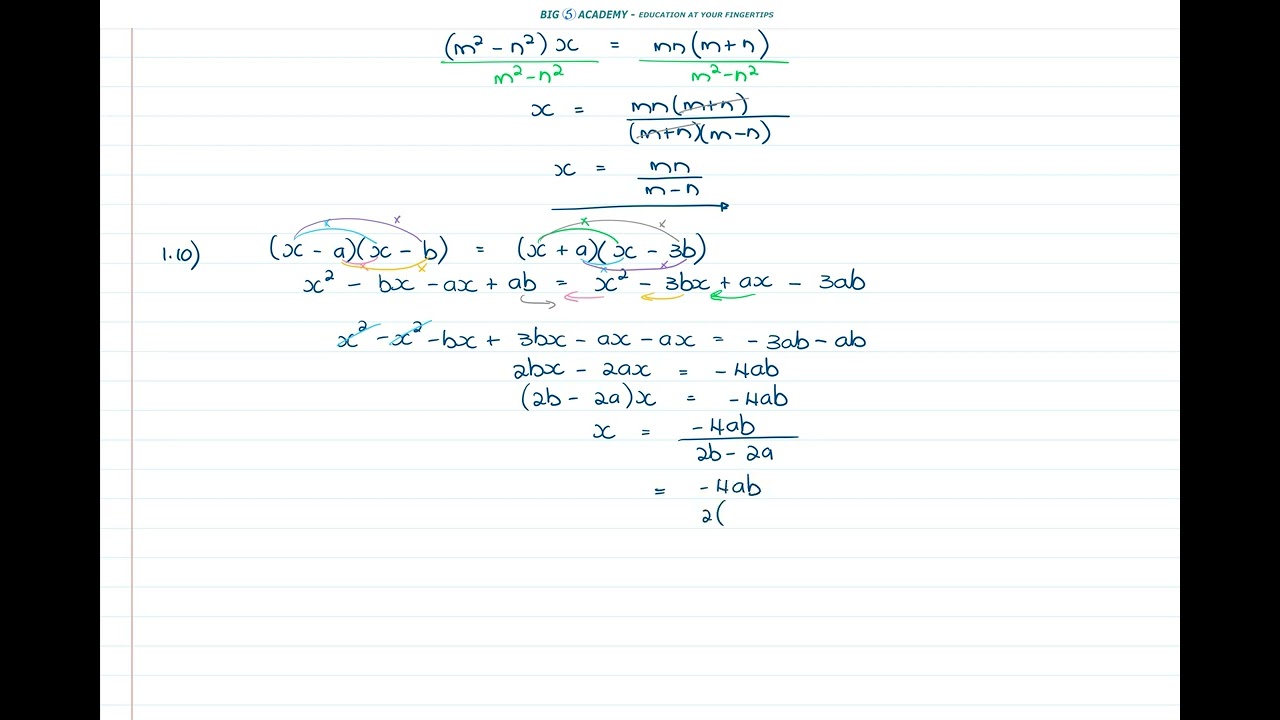 BIG 5 ACADEMY - EDUCATION AT YOUR FINGERTIPS
(m² - n²)x = mn(m+n)
m²-n² m²-n²
x = mn(m+n)
(m+n)(m-n)
x = mn
m-n
1.10) (x - a)(x - b) = (x + a)(x - 3b)
x² - bx - ax + ab = x² - 3bx + ax - 3ab
x² - x² - bx + 3bx - ax - ax = - 3ab - ab
2bx - 2ax = - 4ab
(2b - 2a)x = - 4ab
x = - 4ab
2b - 2a
= - 4ab
2(